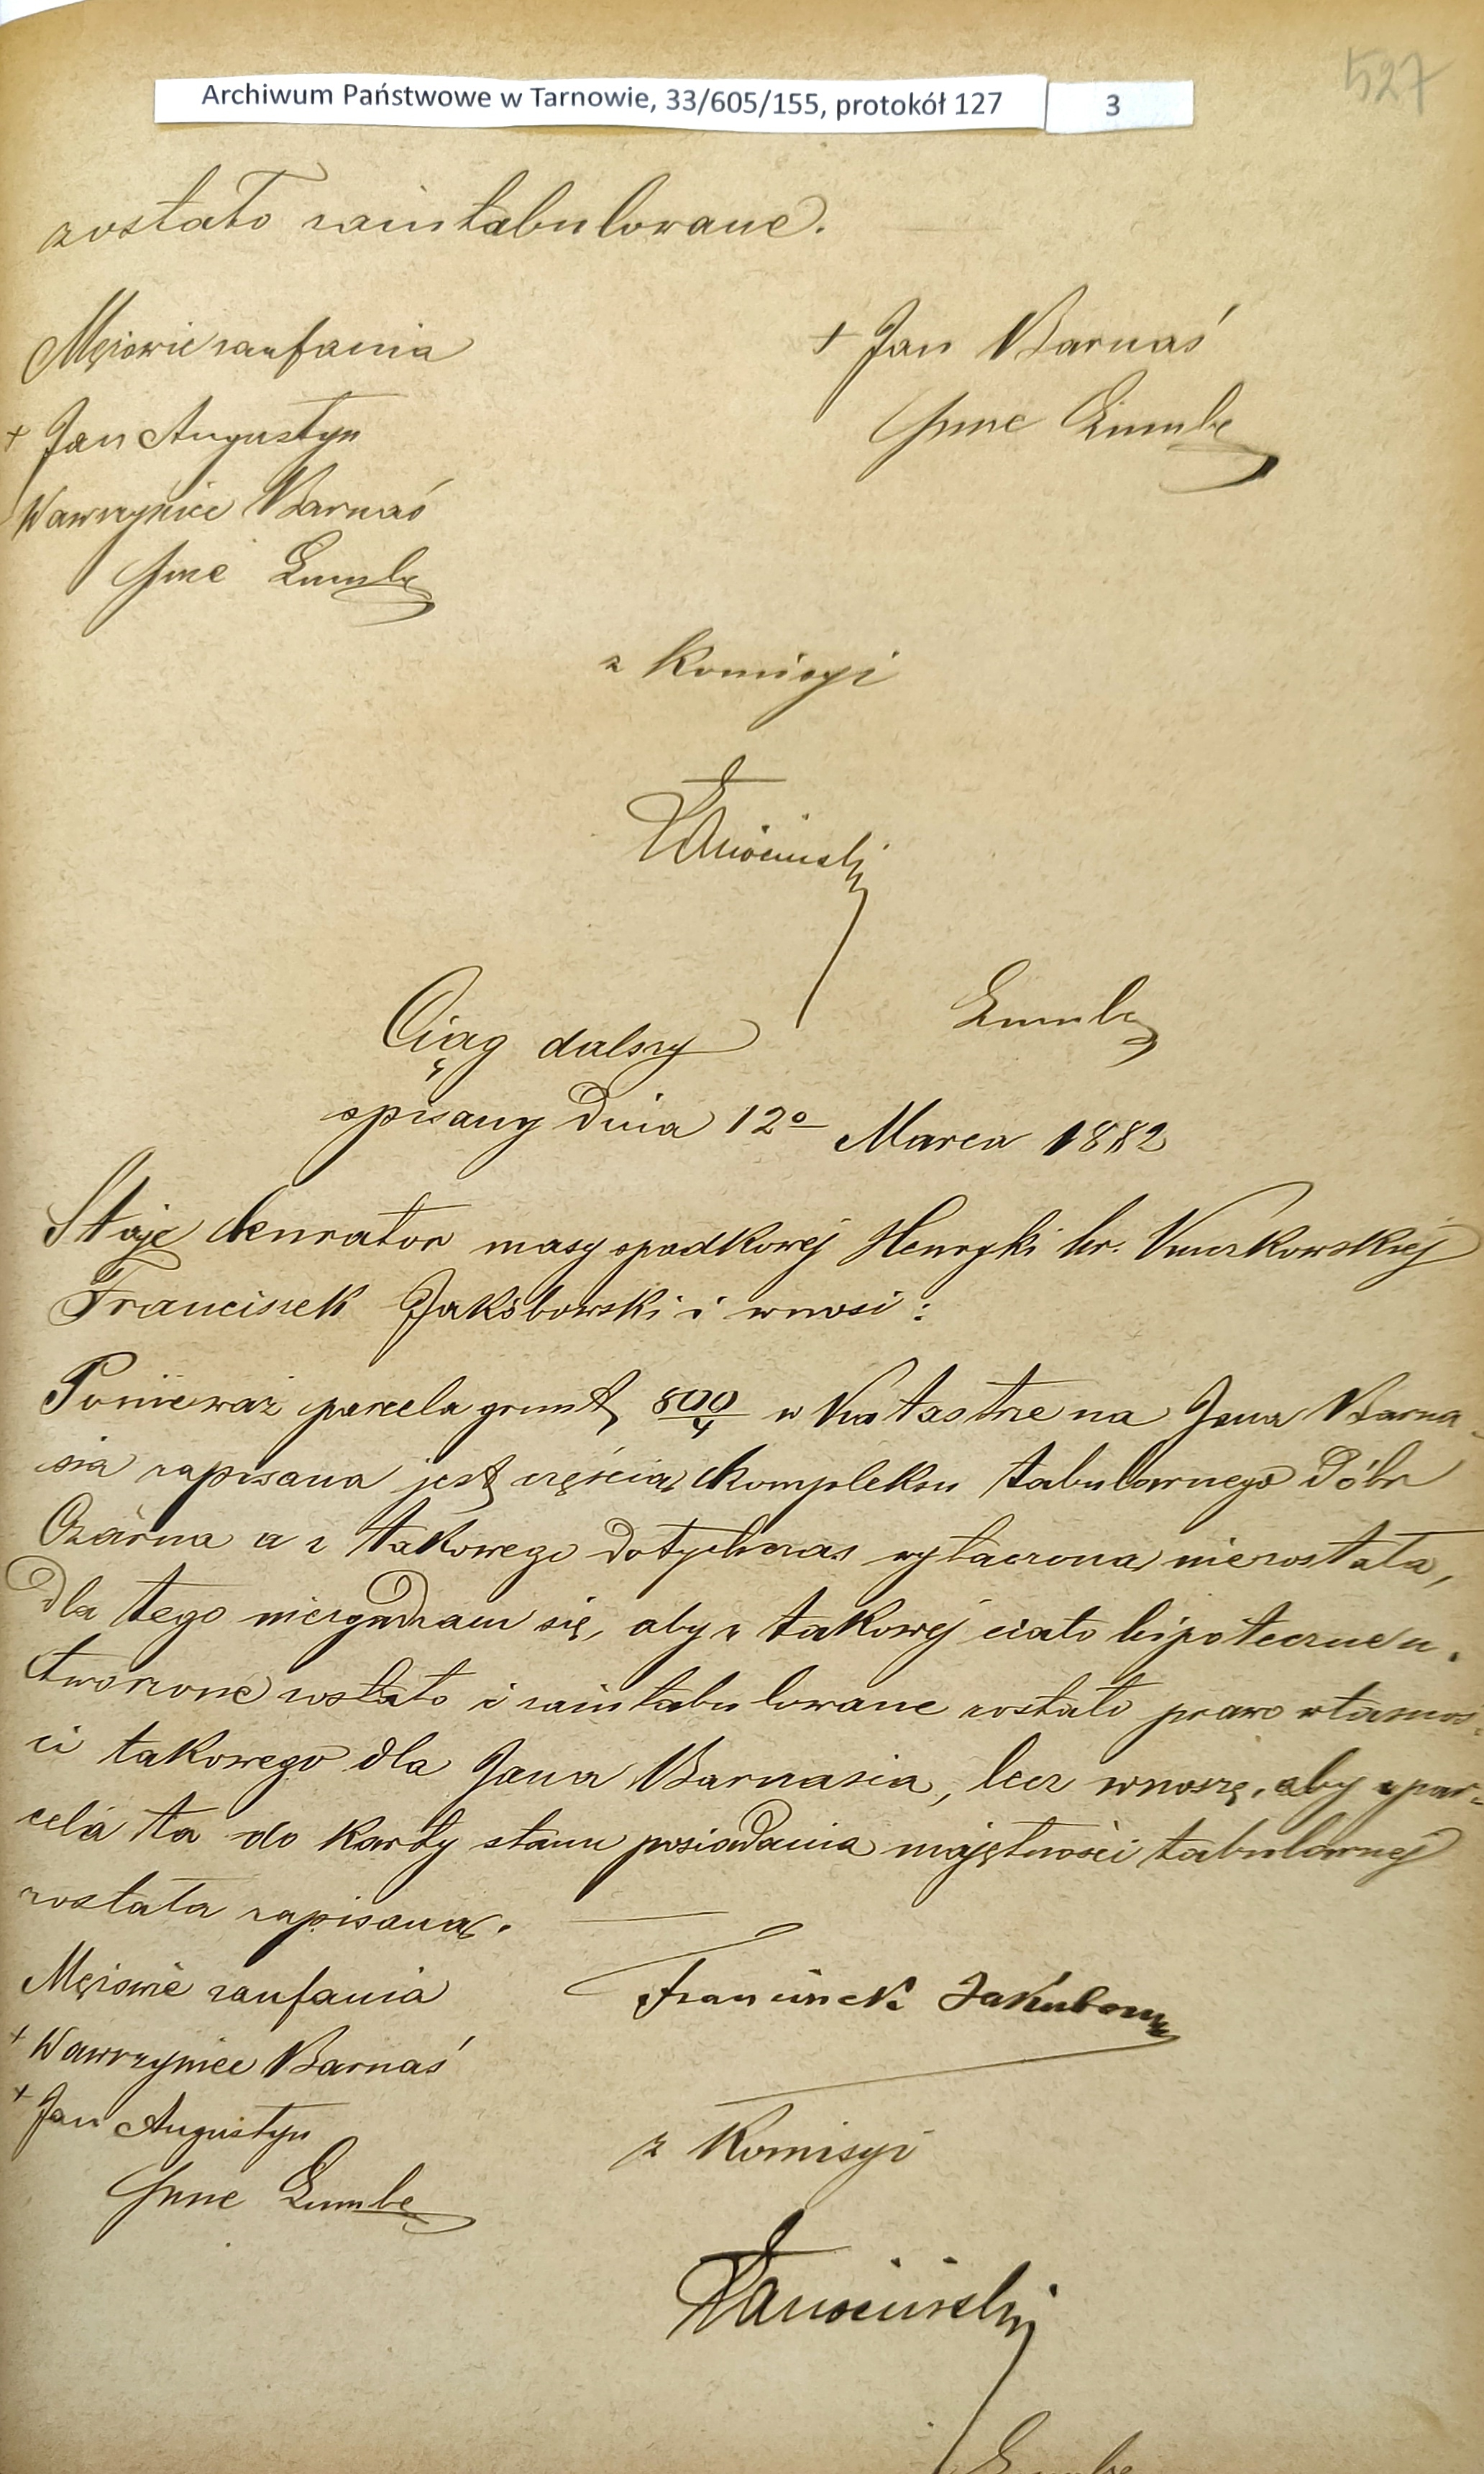 527
Archiwum Państwowe w Tarnowie, 33/605/155, protokół 127 3
zostało zaintabulowane.
Mężowie zaufania
+ Jan Barnaś
+ Jan Augustyn
Wawrzyniec Barnaś
z Komisyi
Ciąg dalszy
spisany dnia 12º Marca 1882
Staje kurator masy spadkowej Henryki hr.
Franciszek Jakóbowski i wnosi:
Ponieważ parcela grunt. 800/4 w Katastrze na Jana Barna-
sia zapisana jest częścią kompleksu tabularnego dóbr
Czarna a z takowego dotychczas wyłączona niezostała,
dla tego niezgadzam się, aby z takowej ciało hipoteczne u-
tworzone zostało i zaintabulowane zostało prawo własnoś-
ci takowego dla Jana Barnasia, lecz wnoszę, aby par-
cela ta do karty stanu posiadania majętności tabularnej
została zapisaną.
Mężowie zaufania
Franciszek
+ Wawrzyniec Barnaś
+ Jan Augustyn
z Komisyi